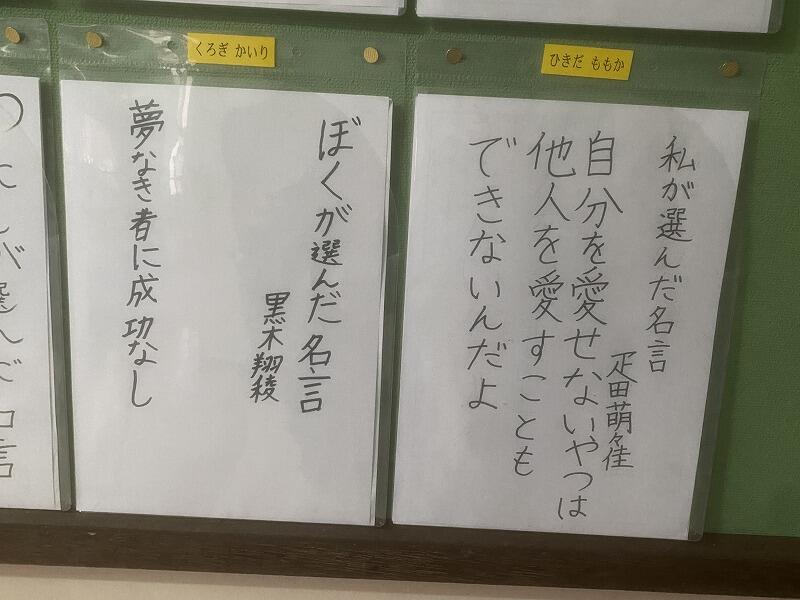 ひきだ ももか
私が選んだ名言
疋田萌々佳
自分を愛せないやつは
他人を愛すことも
できないんだよ
くろぎ かいり
ぼくが選んだ名言
黒木翔稜
夢なき者に成功なし